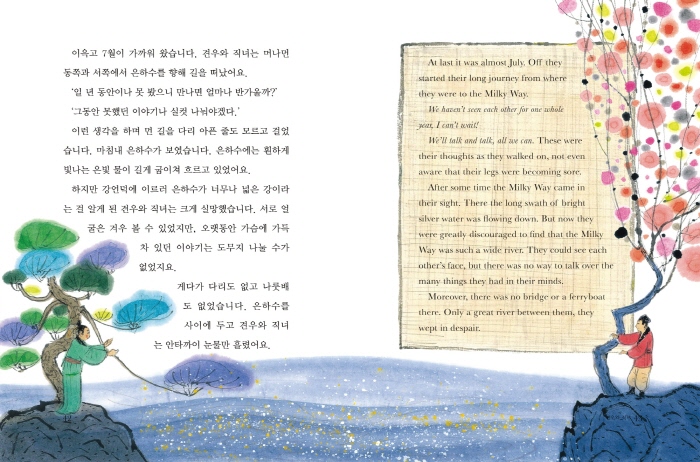 이윽고 7월이 가까워 왔습니다. 견우와 직녀는 머나먼
동쪽과 서쪽에서 은하수를 향해 길을 떠났어요.
‘일 년 동안이나 못 봤으니 만나면 얼마나 반가울까?’
‘그동안 못했던 이야기나 실컷 나눠야겠다.’
이런 생각을 하며 먼 길을 다리 아픈 줄도 모르고 걸었
습니다. 마침내 은하수가 보였습니다. 은하수에는 훤하게
빛나는 은빛 물이 길게 굽이쳐 흐르고 있었어요.
하지만 강언덕에 이르러 은하수가 너무나 넓은 강이라
는 걸 알게 된 견우와 직녀는 크게 실망했습니다. 서로 얼
굴은 겨우 볼 수 있었지만, 오랫동안 가슴에 가득
차 있던 이야기는 도무지 나눌 수가
없었지요.
게다가 다리도 없고 나룻배
도 없었습니다. 은하수를
사이에 두고 견우와 직녀
는 안타까이 눈물만 흘렸어요.
At last it was almost July. Off they
started their long journey from where
they were to the Milky Way.
We haven't seen each other for one whole
year, I can't wait!
We'll talk and talk, all we can. These were
their thoughts as they walked on, not even
aware that their legs were becoming sore.
After some time the Milky Way came in
their sight. There the long swath of bright
silver water was flowing down. But now they
were greatly discouraged to find that the Milky
Way was such a wide river. They could see each
other's face, but there was no way to talk over the
many things they had in their minds.
Moreover, there was no bridge or a ferryboat
there. Only a great river between them, they
wept in despair.